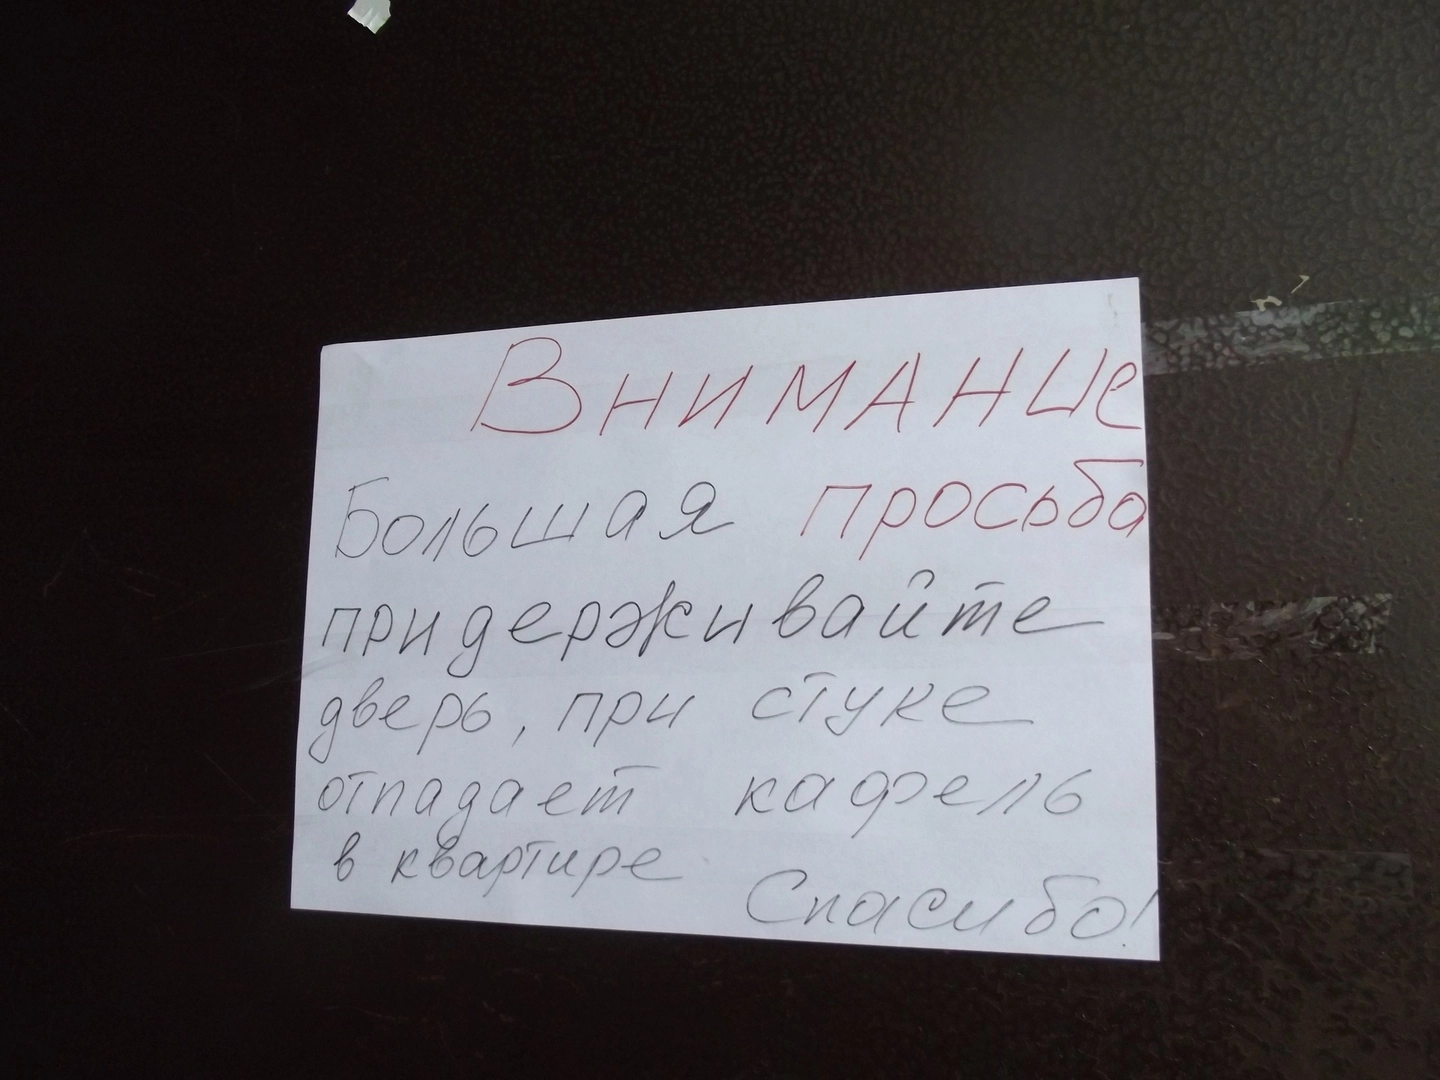 Внимание
Большая просьба
придерживайте
дверь, при стуке
отпадает кафель
в квартире
Спасибо!